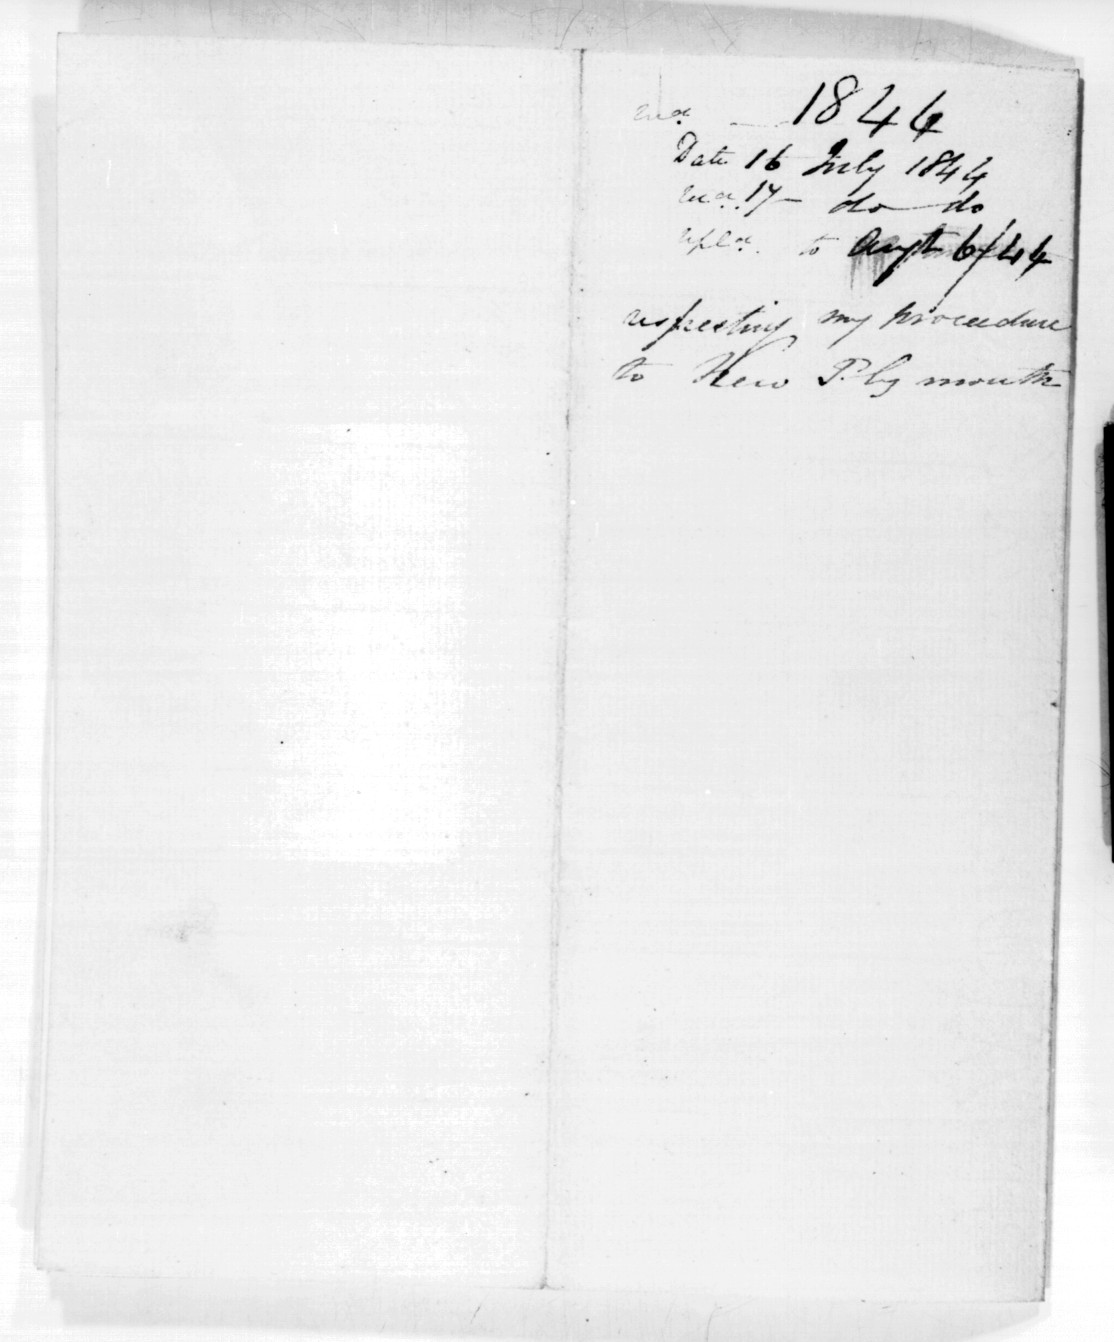 recd. — 1844
Date 16 July 1844
recd. 17 — do — do
repld. to Augt 6/44
respecting my procedure
to New Plymouth